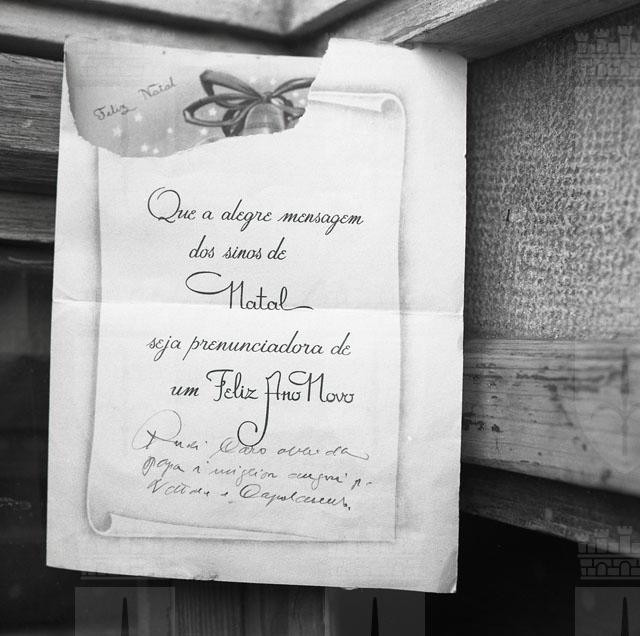 Feliz Natal
Que a alegre mensagem
dos sinos de
Natal
seja prenunciadora de
um Feliz Ano Novo
Caro
i migliori auguri
Natale e